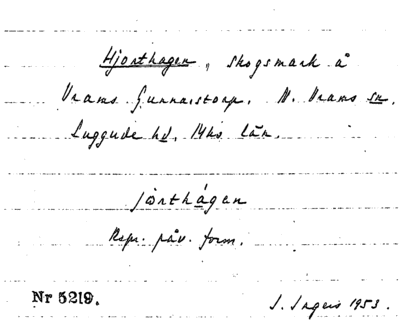 Hjorthagen, skogsmark å
Vrams Gunnarstorp. N. Vrams sn.
Luggude hd. Mhs län.
jørthágen
Rspr. påv. form.
Nr 5219. I. Ingers 1953.